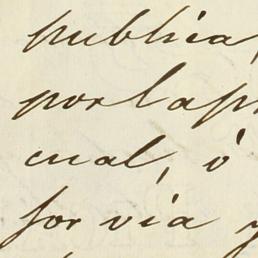 publica,
por la p
cual, ó
for via y